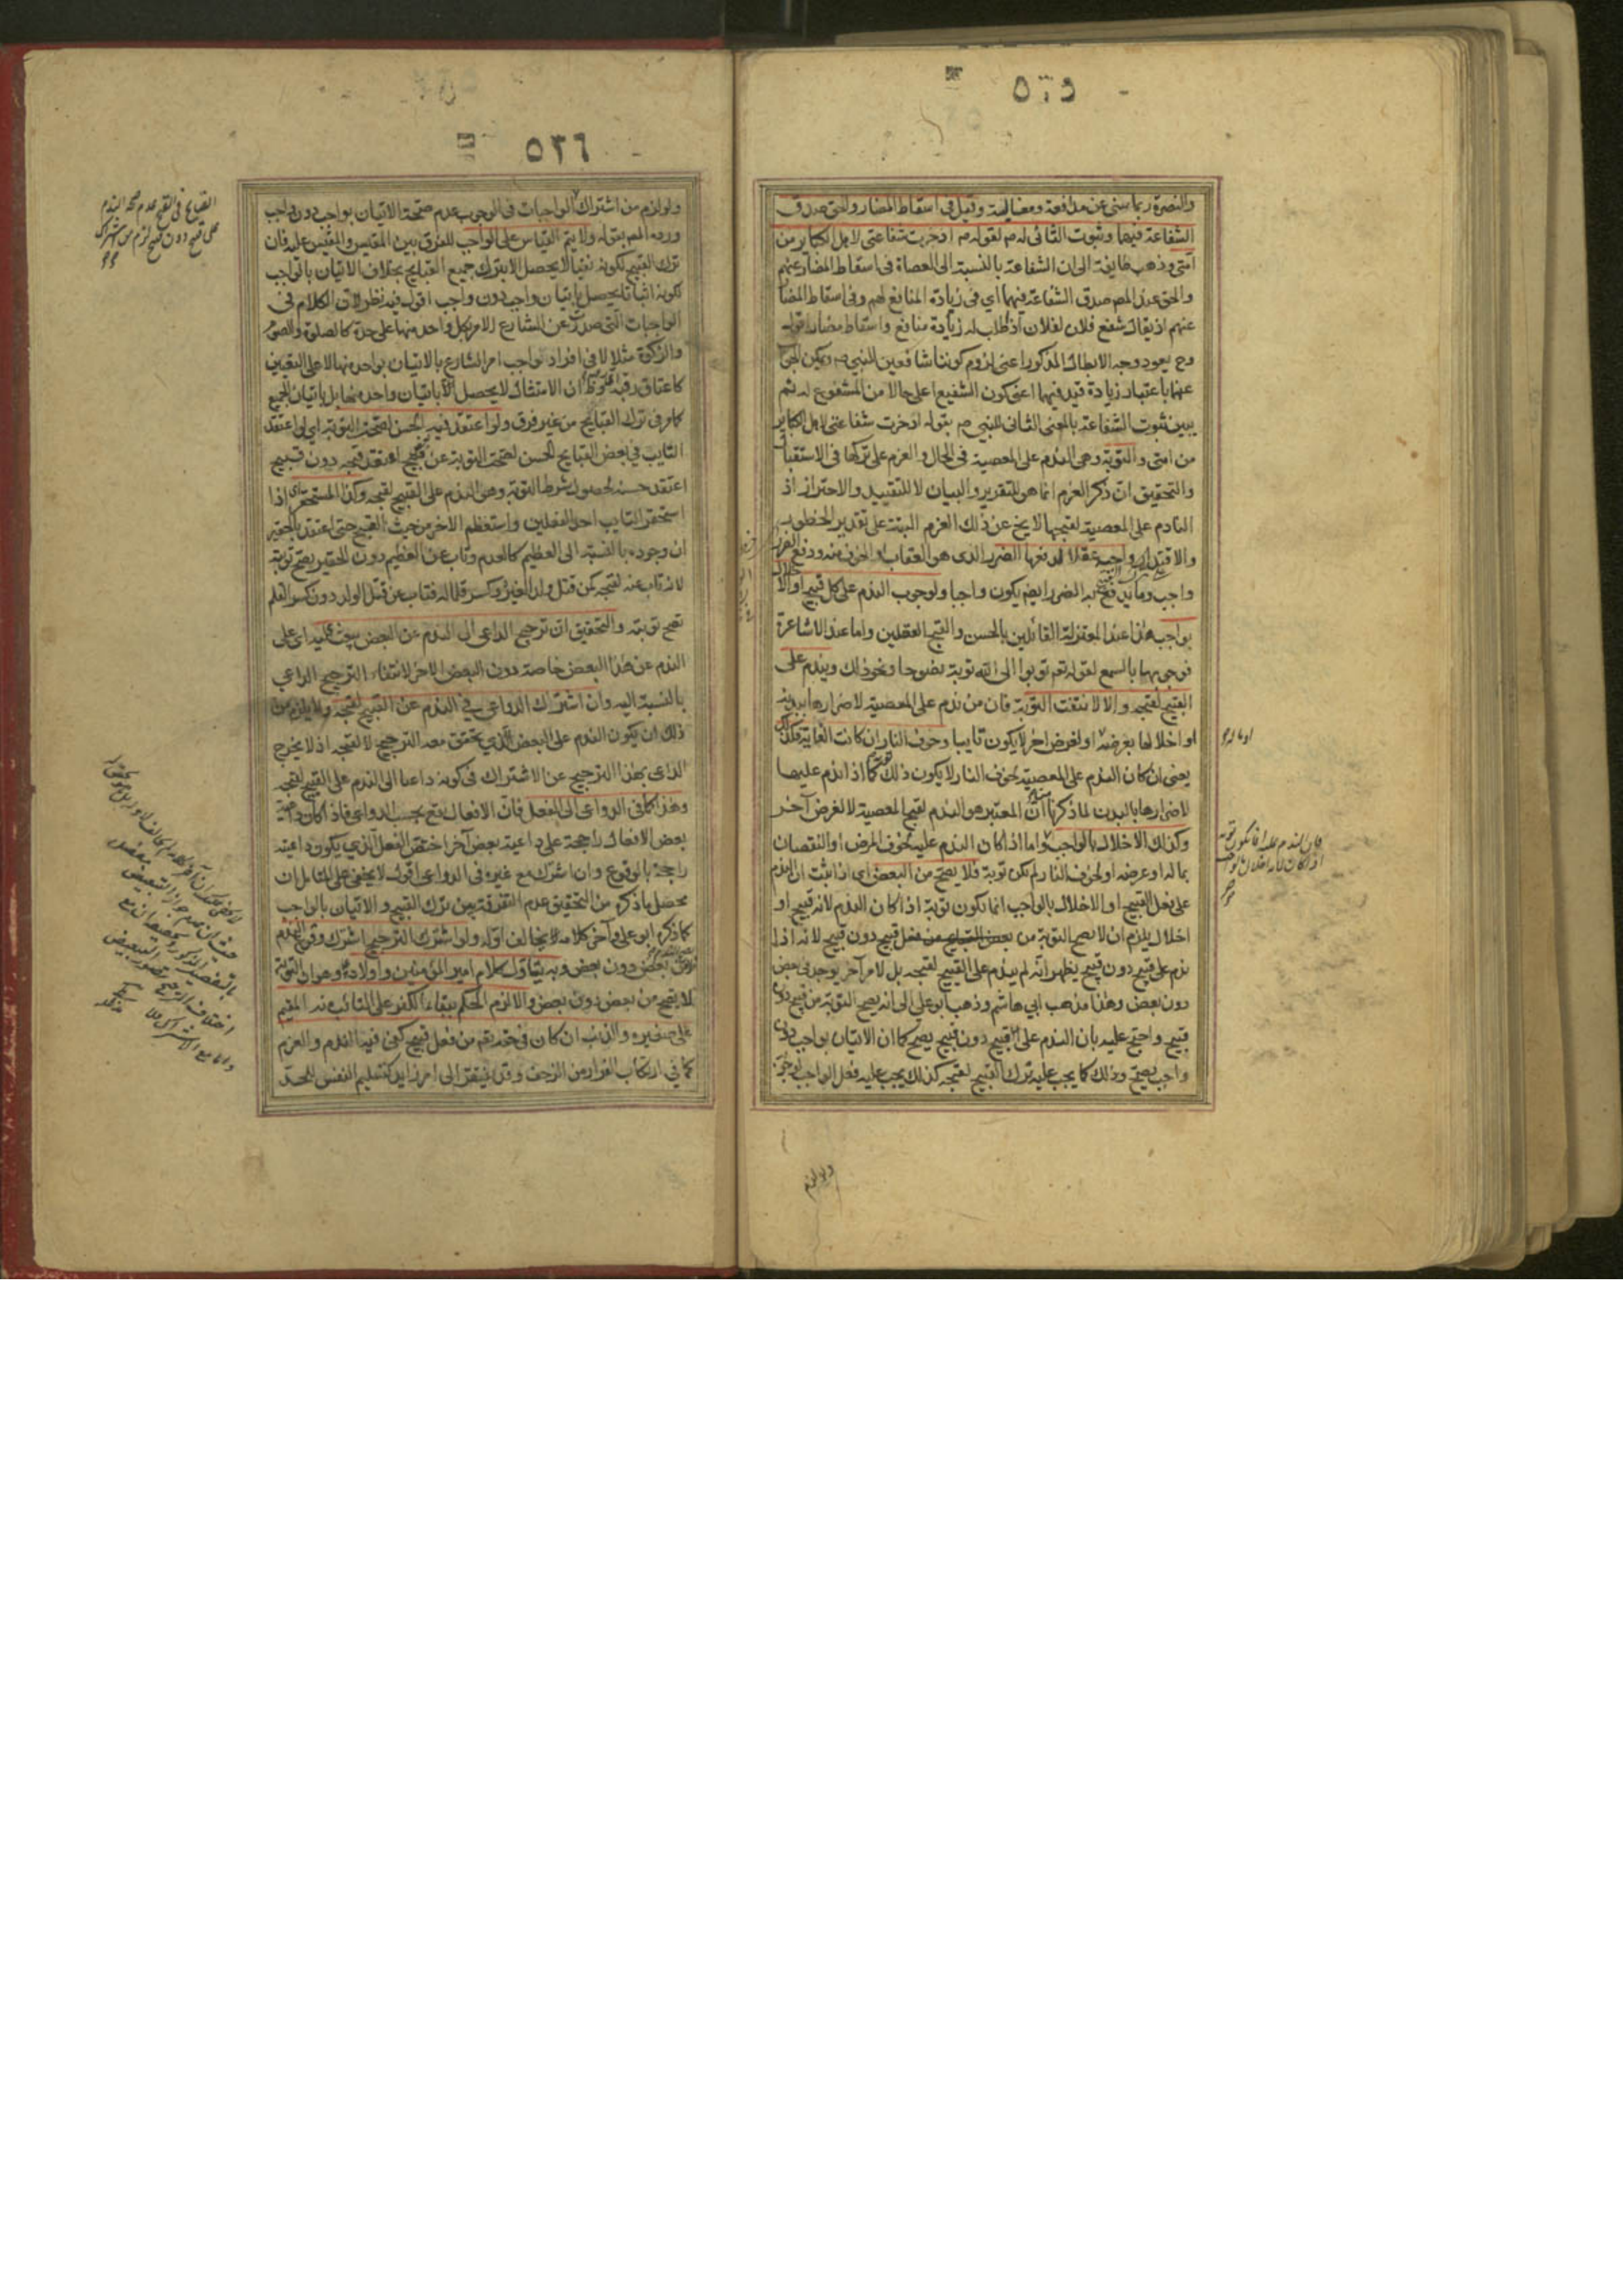 ٥٣٥
والنصرة ربما ينبئ عن مدافعة ومغالبة وقيل في اسقاط المضار والحق صدق
الشفاعة فيهما وثبوت الثاني له ص لقوله ص ادخرت شفاعتي لاهل الكبائر من
امتي وذهب طايفة الى ان الشفاعة بالنسبة الى العصاة في اسقاط المضار عنهم
والحق عند المص صدق الشفاعة فيهما اي في زيادة المنافع لهم وفي اسقاط المضار
عنهم اذ يقال شفع فلان لفلان اذ طلب له زيادة منافع واسقاط مضار اقول
وح يعود وجه الابطال المذكور اعني لزوم كوننا شافعين للنبي ص ويمكن الجواب
عنها باعتبار زيادة قيد فيهما اعني كون الشفيع اعلى حالا من المشفوع له ثم
يبين ثبوت الشفاعة بالمعنى الثاني للنبي ص بقوله ادخرت شفاعتي لاهل الكباير
من امتي والتوبة وهي الندم على المعصية في الحال والعزم على تركها في الاستقبال
والتحقيق ان ذكر العزم انما هو للتقرير والبيان لا للتقييد والاحتراز اذ
النادم على المعصية لقبحها لا يخ عن ذلك العزم البتة على تقدير الخطور
والاقتدار واجبة عقلا لدفعها الضرر الذي هو العقاب او الخوف منه ودفع الضرر
واجب وما يدفع به الضرر ايضم يكون واجبا ولوجوب الندم على كل قبيح او اخلال
بواجب هذا عند المعتزلة القائلين بالحسن والقبح العقليين واما عند الاشاعرة
فوجوبها بالسمع لقوله تعم توبوا الى الله توبة نصوحا ونحو ذلك ويندم على
القبيح لقبحه والا لانتفت التوبة فان من ندم على المعصية لاضرارها ببدنه
او اخلالها بعرضه او لغرض اخر لا يكون تايبا وخوف النار ان كانت الغاية فكذلك
يعني ان كان الندم على المعصية لخوف النار لا يكون ذلك كما اذا ندم عليها
لاضرارها بالبدن لما ذكرنا ان المعتبر هو الندم لقبح المعصية لا لغرض آخر
وكذلك الاخلال بالواجب واما اذا كان الندم عليه لخوف المرض او النقصان
بماله او عرضه او لخوف النار لم تكن توبة فلا يصح من البعض اي اذا ثبت ان الندم
على فعل القبيح او الاخلال بالواجب انما يكون توبة اذا كان الندم لانه قبيح او
اخلال يلزم ان لا يصح التوبة من قبيح دون قبيح لانه اذا
ندم على قبيح دون قبيح يظهر انه لم يندم على القبيح لقبحه بل لامر آخر يوجد في بعض
دون بعض وهذا مذهب ابي هاشم وذهب ابو علي الى انه يصح التوبة من قبيح دون
قبيح واحتج عليه بان الندم على القبيح دون قبيح يصح كما ان الاتيان بواجب دون
واجب يصح وذلك كما يجب عليه ترك القبيح لقبحه كذلك يجب عليه فعل الواجب لوجوبه
ولو لزم
٥٣٦
ولو لزم من اشتراك الواجبات في الوجوب عدم صحة الاتيان بواجب دون واجب
ورده المص بقوله ولا يتم القياس على الواجب للفرق بين المقيس والمقيس عليه فان
ترك القبيح لكونه نفيا لا يحصل الا بترك جميع القبايح بخلاف الاتيان بالواجب
لكونه اثباتا يحصل باتيان واجب دون واجب اقول فيه نظر لان الكلام في
الواجبات التي صدرت عن الشارع الامر بكل واحد منها على حدة كالصلوة والصوم
والزكوة مثلا لا في افراد لواجب امر الشارع بالاتيان بواحد منها لا على التعيين
كاعتاق رقبة ان الامتثال لا يحصل الا باتيان واحد منها بل باتيان الجميع
كما في ترك القبايح من غير فرق ولو اعتقد فيه الحسن لصحت التوبة اي لو اعتقد
التايب في بعض القبايح الحسن لصحت التوبة عن قبيح اعتقد قبحه دون قبيح
اعتقد حسنه لحصول شرط التوبة وهي الندم على القبيح لقبحه وكذا المستحقر اي اذا
استحقر التايب احد الفعلين واستعظم الاخر من حيث القبح حتى اعتقد بالحقير
ان وجوده بالنسبة الى العظيم كالعدم وتاب عن العظيم دون الحقير يصح توبته
لانه تاب عنه لقبحه كمن قتل ولد الغير وكسر قلما له فتاب عن قتل الولد دون كسر القلم
تصح توبته والتحقيق ان ترجيح الداعي الى الندم عن البعض يبعث عليه اي على
الندم عن هذا البعض خاصة دون البعض الاخر لانتفاء الترجيح الداعي
بالنسبة اليه وان اشترك الدواعي في الندم عن القبيح لقبحه ولا يلزم من
ذلك ان يكون الندم على البعض الذي يتحقق معه الترجيح لا لقبحه اذ لا يخرج
الداعي بهذا الترجيح عن الاشتراك في كونه داعيا الى الندم على القبيح لقبحه
وهذا كما في الدواعي الى الفعل فان الافعال تقع بحسب الدواعي فاذا كان داعية
بعض الافعال راجحة على داعية بعض آخر اختص الفعل الذي يكون داعيته
راجحة بالوقوع وان اشترك مع غيره في الدواعي اقول لا يخفى على المتامل ان
محصل ما ذكره من التحقيق عدم التفرقة بين ترك القبيح والاتيان بالواجب
كما ذكره ابو علي وآخر كلامه لا يخالف اوله ولو اشترك الترجيح اشترك وقوع الندم
بعض دون بعض وبه يتاول كلام امير المؤمنين واولاده وهو ان التوبة
لا يصح من بعض دون بعض والا لزم الحكم ببقاء الكفر على التائب منه المقيم
على صغيرة والذنب ان كان في حقه تعم من فعل قبيح كفى فيه الندم والعزم
كما في ارتكاب الفرار من الزحف وقد يفتقر الى امر زايد كتسليم النفس للحد